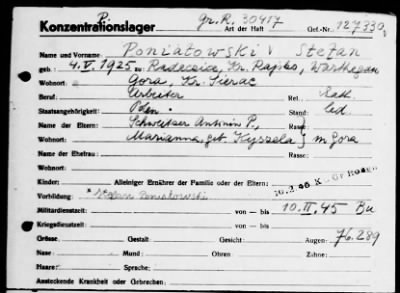 Pi gr. R. 30417
Konzentrationslager Art der Haft Gef.-Nr.: 127330
Name und Vorname: Poniatowski Stefan
geb.: 4.V.1925 zu Radacsice, Kr. Rajsko, Warthegau
Wohnort: Gora, Kr. Sierac
Beruf: Arbeiter Rel.: kath.
Staatsangehörigkeit: Polen. Stand: led.
Name der Eltern: Schweitzer Antonin P., Rasse:
Wohnort: Marianna, geb. Kyszela in Gora
Name der Ehefrau: Rasse:
Wohnort:
Kinder: Alleiniger Ernährer der Familie oder der Eltern:
Vorbildung: Stefan Poniatowski
Militärdienstzeit: von — bis 10.II.45 Bu
Kriegsdienstzeit: von — bis
Grösse: Gestalt: Gesicht: Augen: 76.289
Nase: Mund: Ohren: Zähne:
Haare: Sprache:
Ansteckende Krankheit oder Gebrechen: